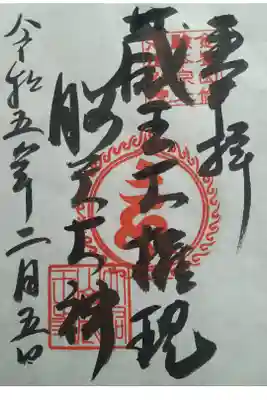 奉拝
蔵王大権現
脳天大神
令和五年二月五日